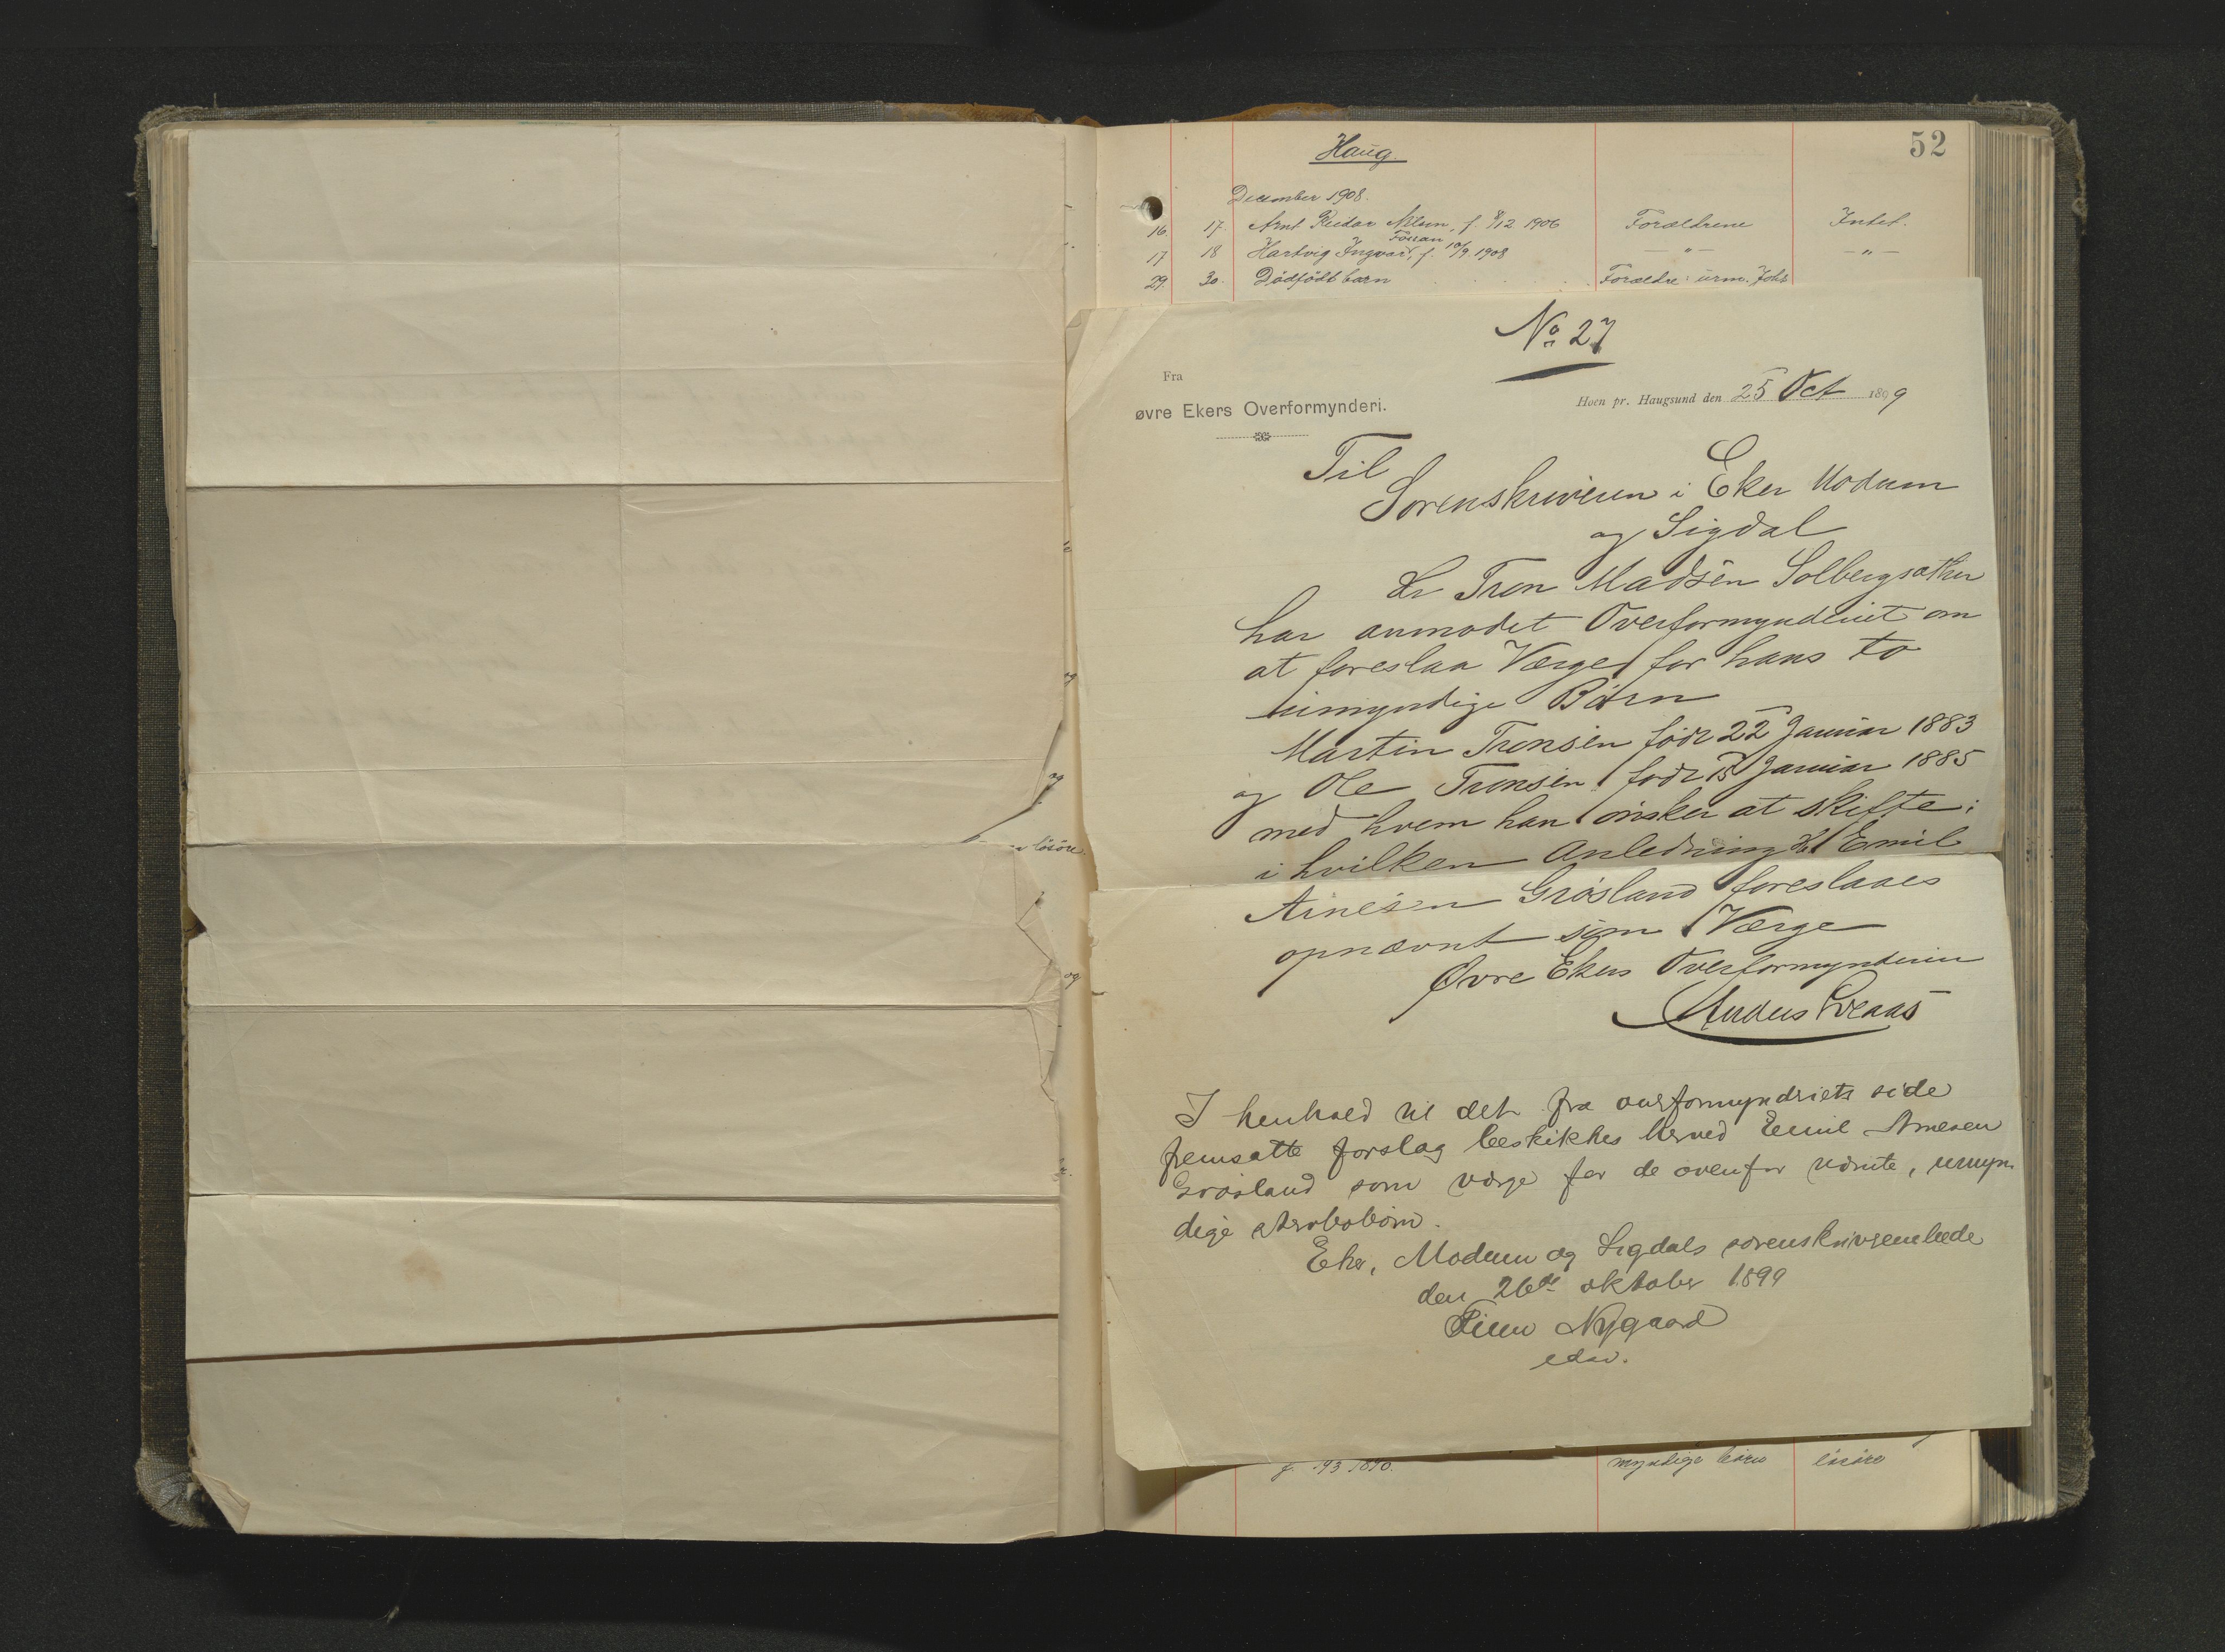 52
Haug.
December 1908.
16. 17. Arnt Reidar Nilsen, f. 8/12 1906 Forældrene Intet.
Fossan
17 18 Hartvig Ingvar, f. 10/9. 1908 — " — — " —
29. 30. Dödfödt barn . . . Forældre: urm. Joh
No 27
Fra
øvre Ekers Overformynderi.
Hoen pr. Haugsund den 25 Oct 1899
Til
Sorenskriveren i Eker Modum
og Sigdal
Hr Tron Madsen Solbergsæther
har anmodet Overformynderiet om
at foreslaa Værge for hans to
umyndige Børn
Martin Tronsen født 22 Januar 1883
og Ole Tronsen født 15 Januar 1885
med hvem han ønsker at skifte;
i hvilken Anledning Hr Emil
Arnesen Grøsland foreslaaes
opnævnt som Værge
Øvre Ekers Overformynderi
Anders Sveaas
I henhold til det fra overformynderiets side
fremsatte forslag beskikkes herved Emil Arnesen
Grøsland som værge for de ovenfor nævnte, umyn
dige arvebørn.
Eker, Modum og Sigdals sorenskriverembede
den 26de oktober 1899
Nygaard
løsøre
og
og
f. 19/3 1890. myndige börn lösöre